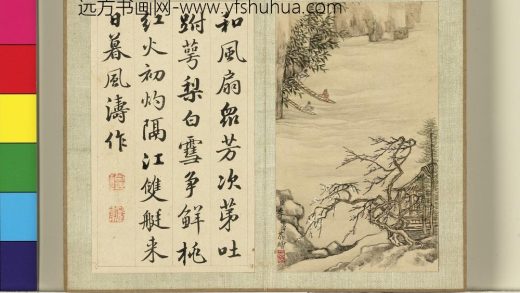 远方书画网-www.yfshuhua.com
和風扇眾芳次苐吐
跗萼梨白雪争鮮桃
紅火初灼隔江雙艇来
日暮風濤作